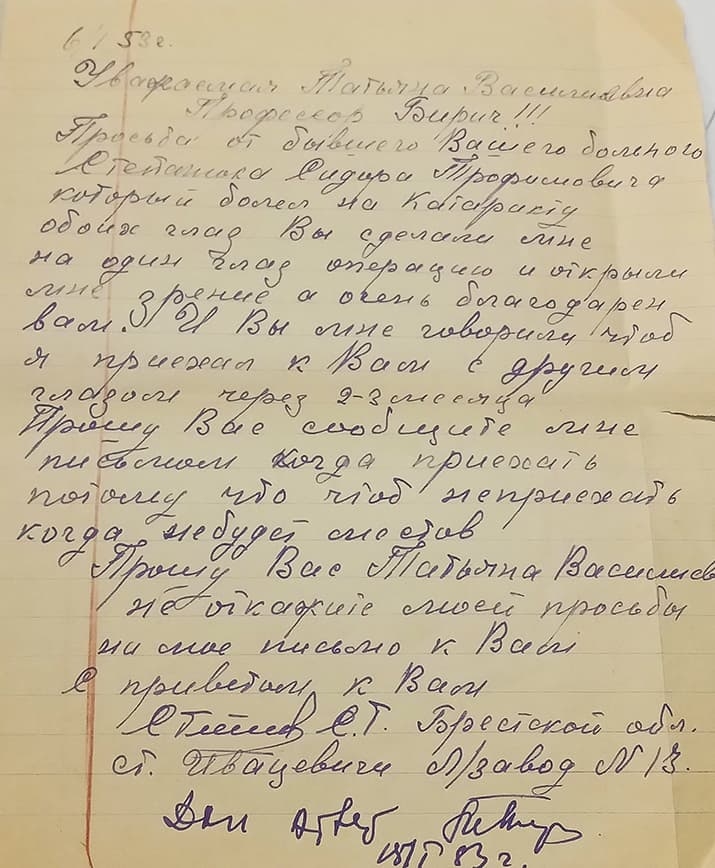 6/I 53 г.
Уважаемая Татьяна Василиевна
Професcор Бирич!!!
Просьба от бывшего Вашего больного
Степанюка Сидора Трофимовича
который болел на Катаракту
обоих глаз Вы сделали мне
на один глаз операцию и открыли
мне зрение а очень благодарен
вам. И Вы мне говорили чтоб
я приехал к Вам с другим
глазом через 2-3 месяца
Прошу Вас сообщите мне
письмом когда приехать
потому что чтоб неприехать
когда небудет местов
Прошу Вас Татьяна Василиев
не откажите моей просьбы
на мое письмо к Вам
С приветом к Вам
С.Т. Брестской обл.
ст. Ивацевичи Л/завод N 13.
Дан ответ
г.